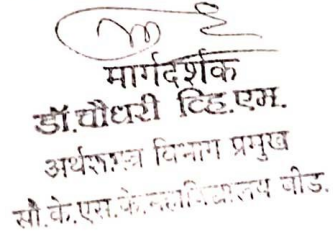 मार्गदर्शक
डॉ.चौधरी व्हि.एम.
अर्थशास्त्र विभाग प्रमुख
सौ.के.एस.के.महाविद्यालय बीड.